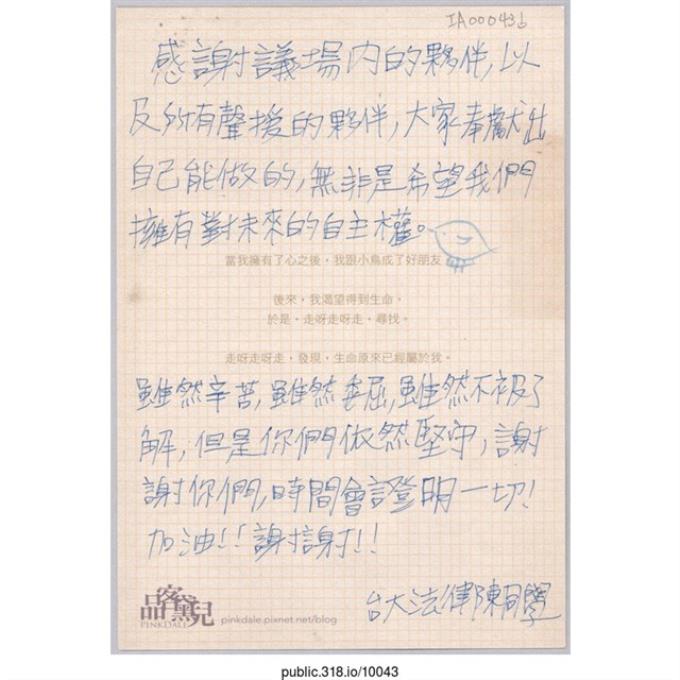 IA000436
感謝議場內的夥伴,以
及所有聲援的夥伴,大家奉獻出
自己能做的,無非是希望我們
擁有對未來的自主權。
當我擁有了心之後,我跟小鳥成了好朋友。
後來,我渴望得到生命,
於是,走呀走呀走,尋找。
走呀走呀走,發現,生命原來已經屬於我。
雖然辛苦,雖然委屈,雖然不被了
解,但是你們依然堅守,謝
謝你們,時間會證明一切!
加油!!謝謝!!
台大法律陳同學
品客黛兒
PINKDALE
pinkdale.pixnet.net/blog
public.318.io/10043